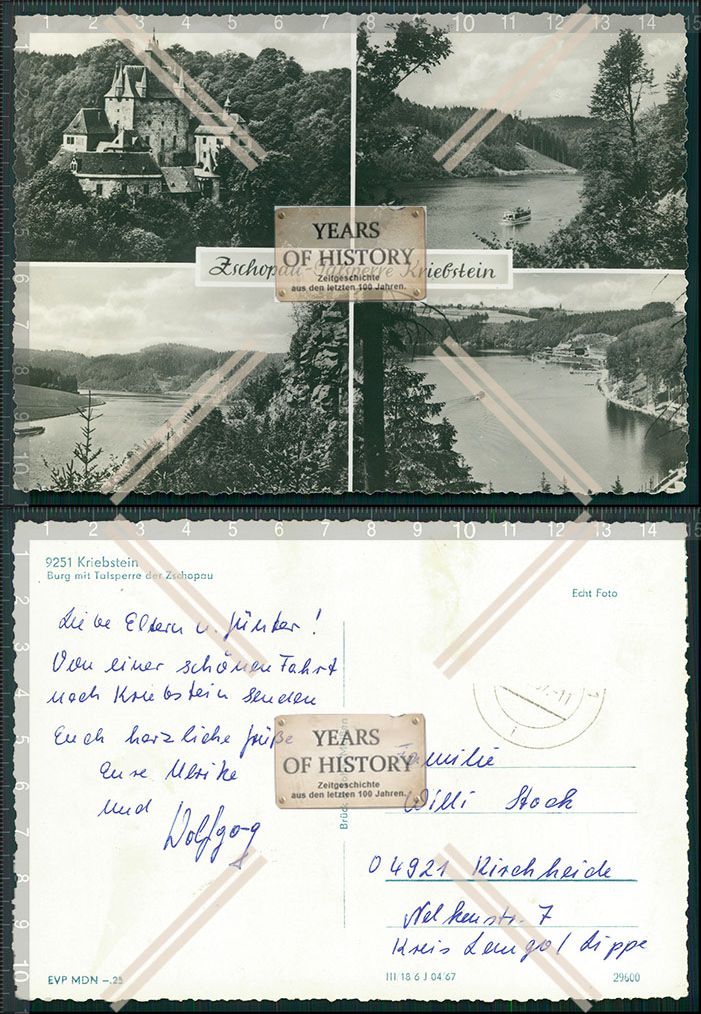 Zschopau-Talsperre Kriebstein
YEARS
OF HISTORY
Zeitgeschichte
aus den letzten 100 Jahren.
9251 Kriebstein
Burg mit Talsperre der Zschopau
Echt Foto
Liebe Eltern u. Günter!
Von einer schönen Fahrt
nach Kriebstein senden
Euch herzliche Grüße
Eure Ulrike
und
Wolfgang
YEARS
OF HISTORY
Zeitgeschichte
aus den letzten 100 Jahren.
Familie
Willi Stock
04921 Kirchheide
Nelkenstr. 7
Kreis Lemgo / Lippe
EVP MDN –.25
III 18 6 J 04/67
29600